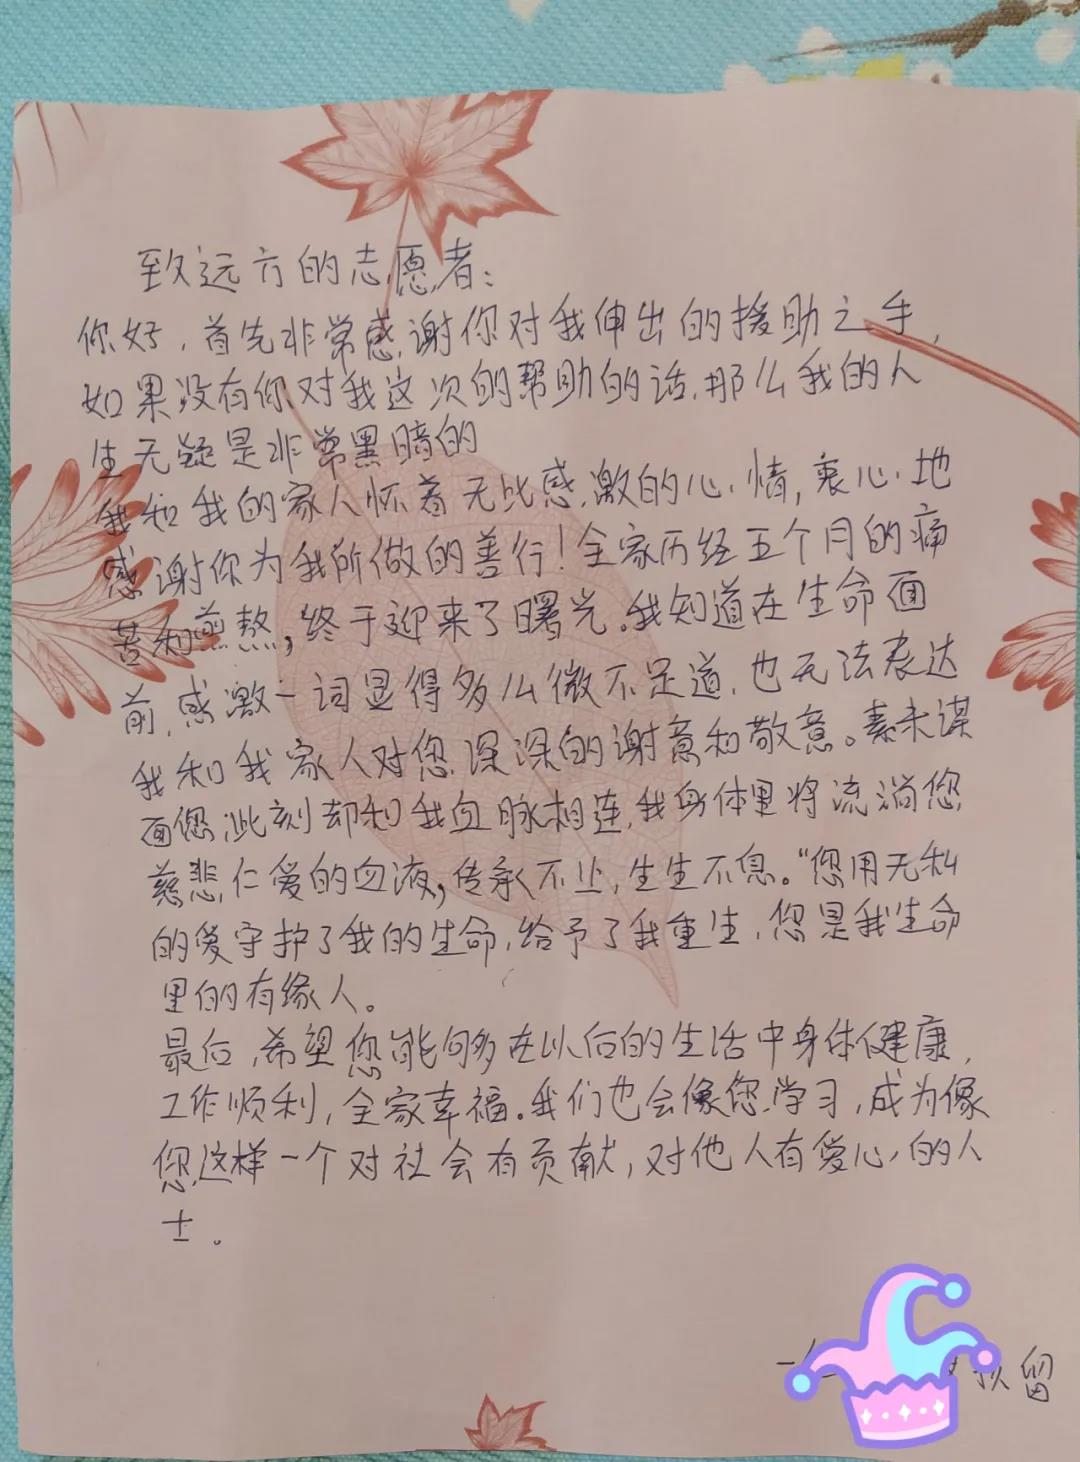 致远方的志愿者：
你好，首先非常感谢你对我伸出的援助之手，
如果没有你对我这次的帮助的话，那么我的人
生无疑是非常黑暗的
我和我的家人怀着无比感激的心情，衷心地
感谢你为我所做的善行！全家历经五个月的痛
苦和煎熬，终于迎来了曙光。我知道在生命面
前，感激一词显得多么微不足道，也无法表达
我和我家人对您深深的谢意和敬意。素未谋
面您，此刻却和我血脉相连，我身体里将流淌您
慈悲仁爱的血液，传承不止，生生不息。“您用无私
的爱守护了我的生命，给予了我重生，您是我生命
里的有缘人。
最后，希望您能够在以后的生活中身体健康，
工作顺利，全家幸福。我们也会像您学习，成为像
您这样一个对社会有贡献，对他人有爱心的人
士。
一 留